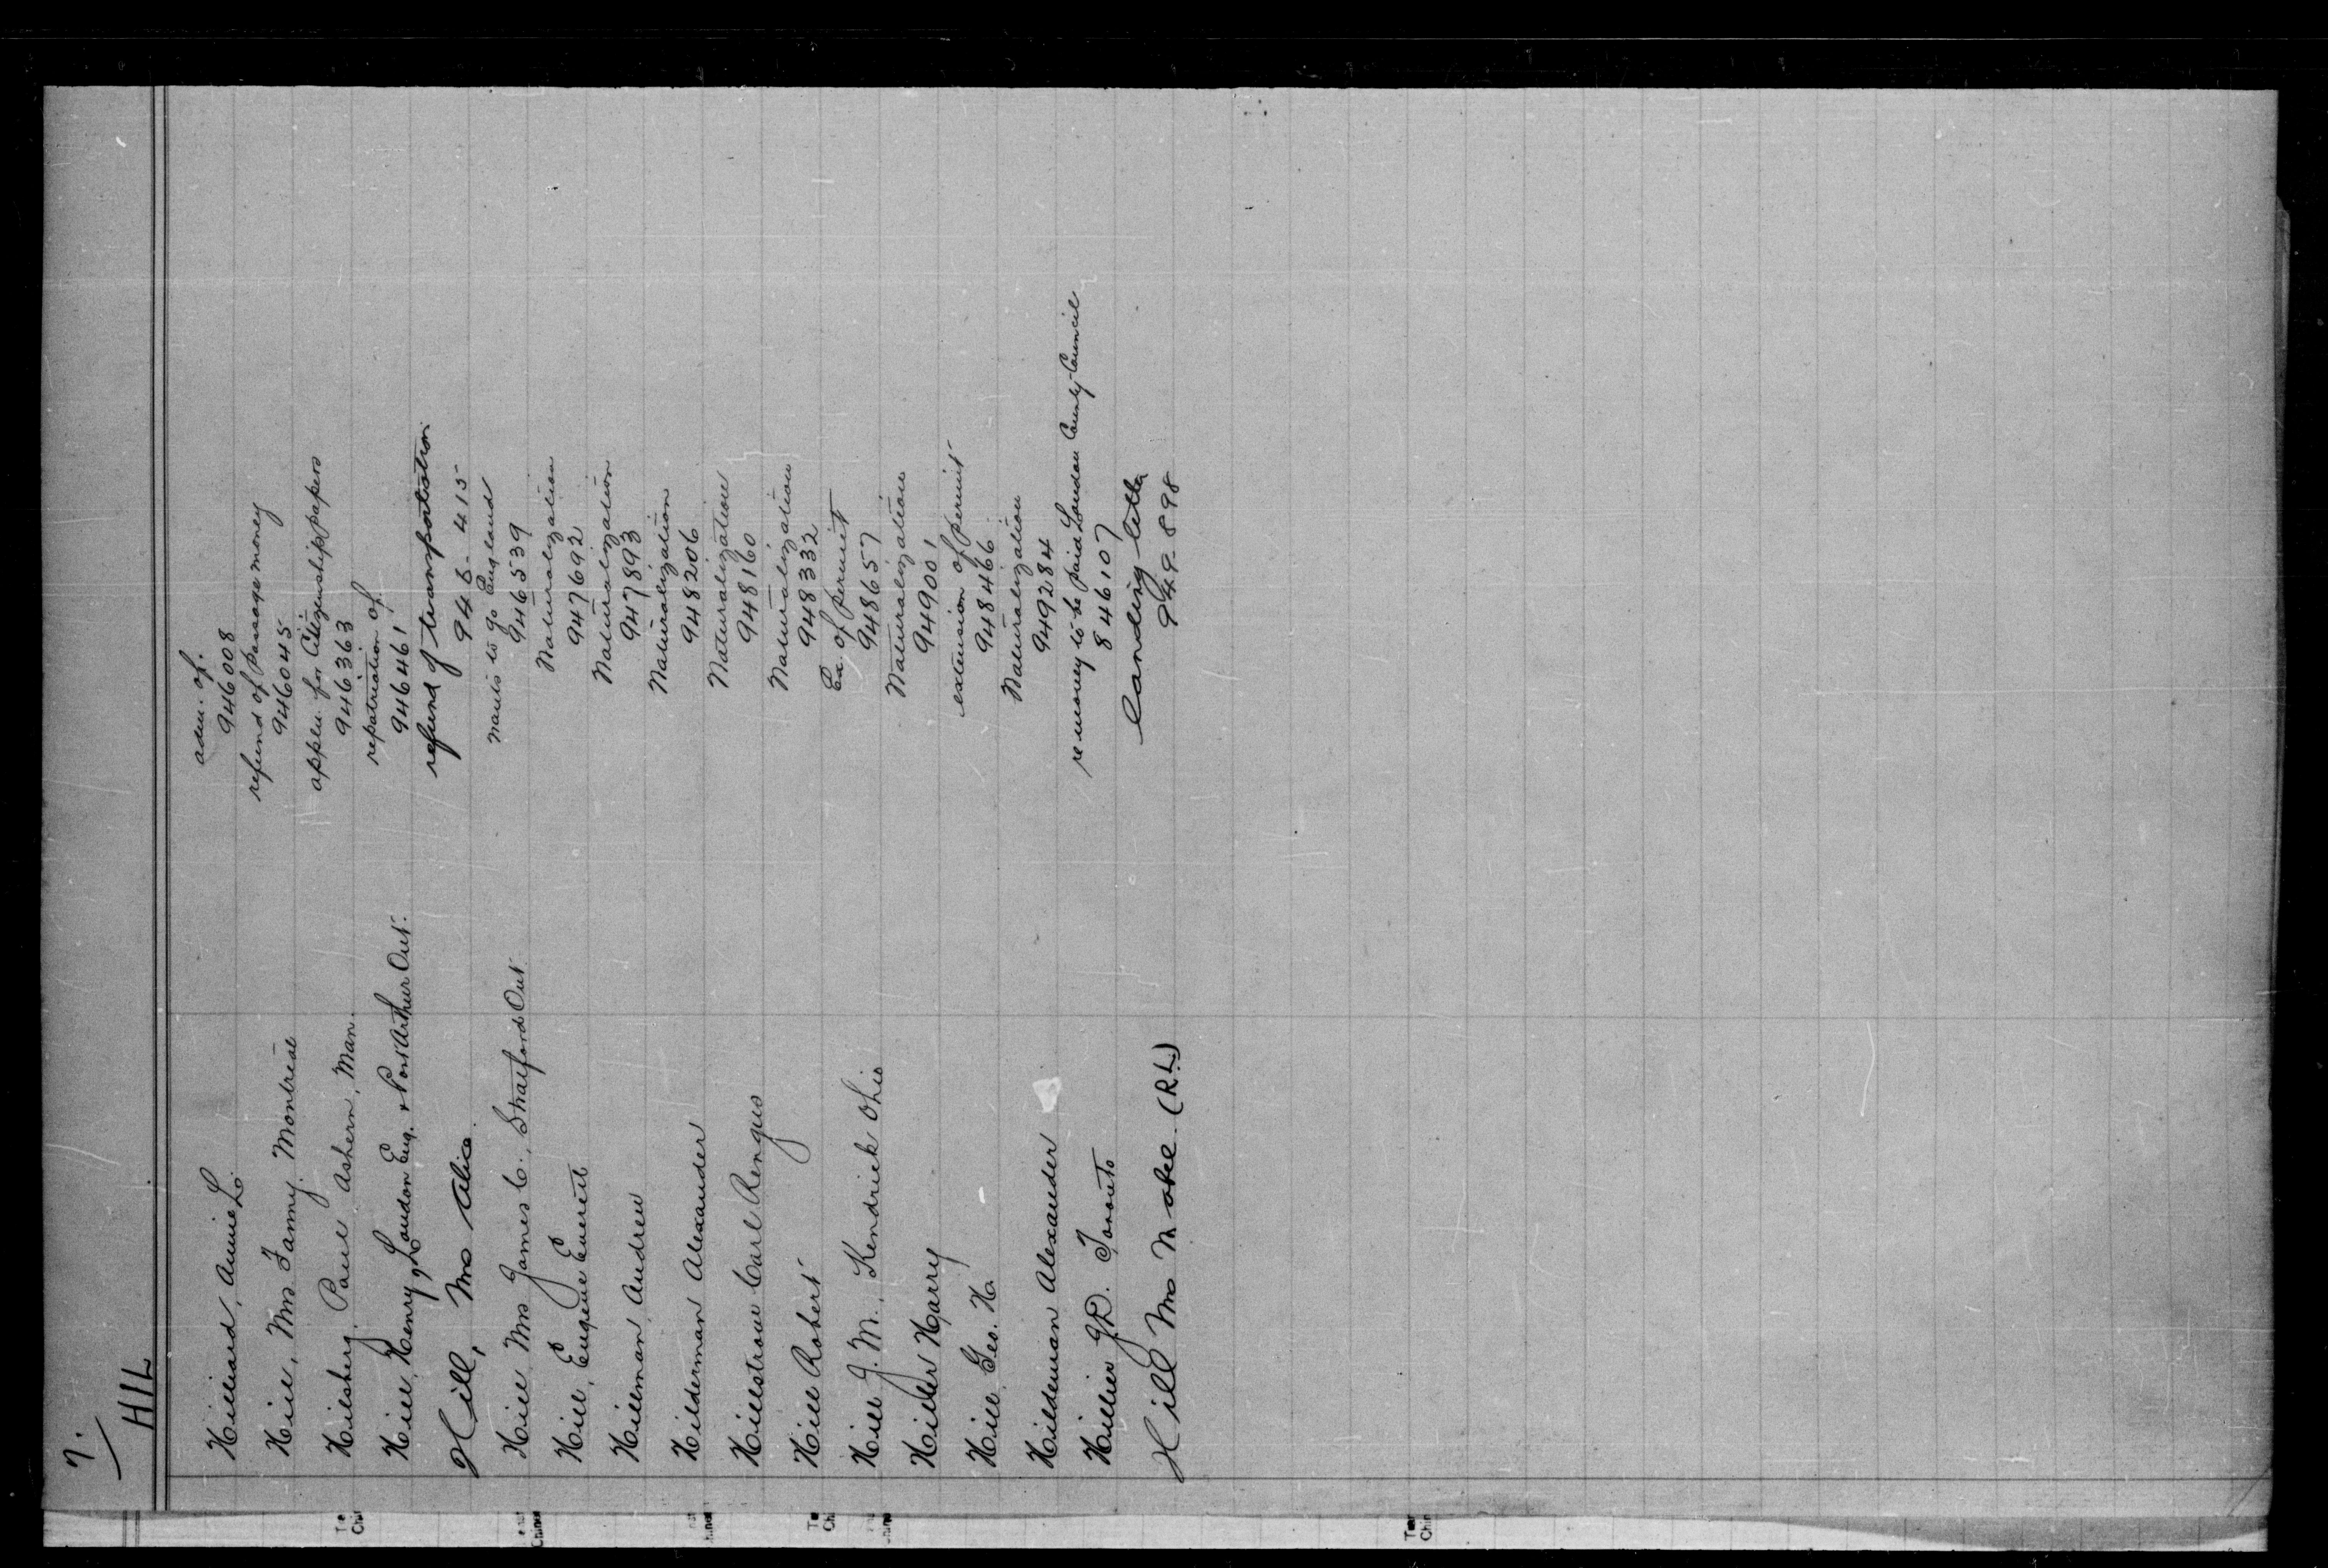 7.
HIL
Hilliard, Annie L. adm. of.
946008
Hill, Mrs Fanny. Montreal refund of passage money
946045
Hilsberg, Paul Ashern, Man. appln. for Citizenship papers
946363
Hill, Henry, London Eng. & Port Arthur Ont. repatriation of
946461
Hill, Mrs Alice. refund of transportation
946-415
Hill Mrs James C., Stratford Ont. wants to go England
946539
Hill, Eugene Everett Naturalization
947692
Hillman, Andrew Naturalization
947893
Hilderman Alexander Naturalization
948206
Hillstrow Carl Rengus Naturalization
948160
Hill Robert Naturalization
948332
Hill J. M., Kendrick Ohio Ex. of permit
948657
Hiller Harry Naturalization
949001
Hill, Geo. H. extension of permit
948466
Hildeman Alexander Naturalization
949284
Hillier J.D. Toronto re money to be paid London County Council
846107
Hill Mrs Mabel (R.L.) Landing letter
949-898